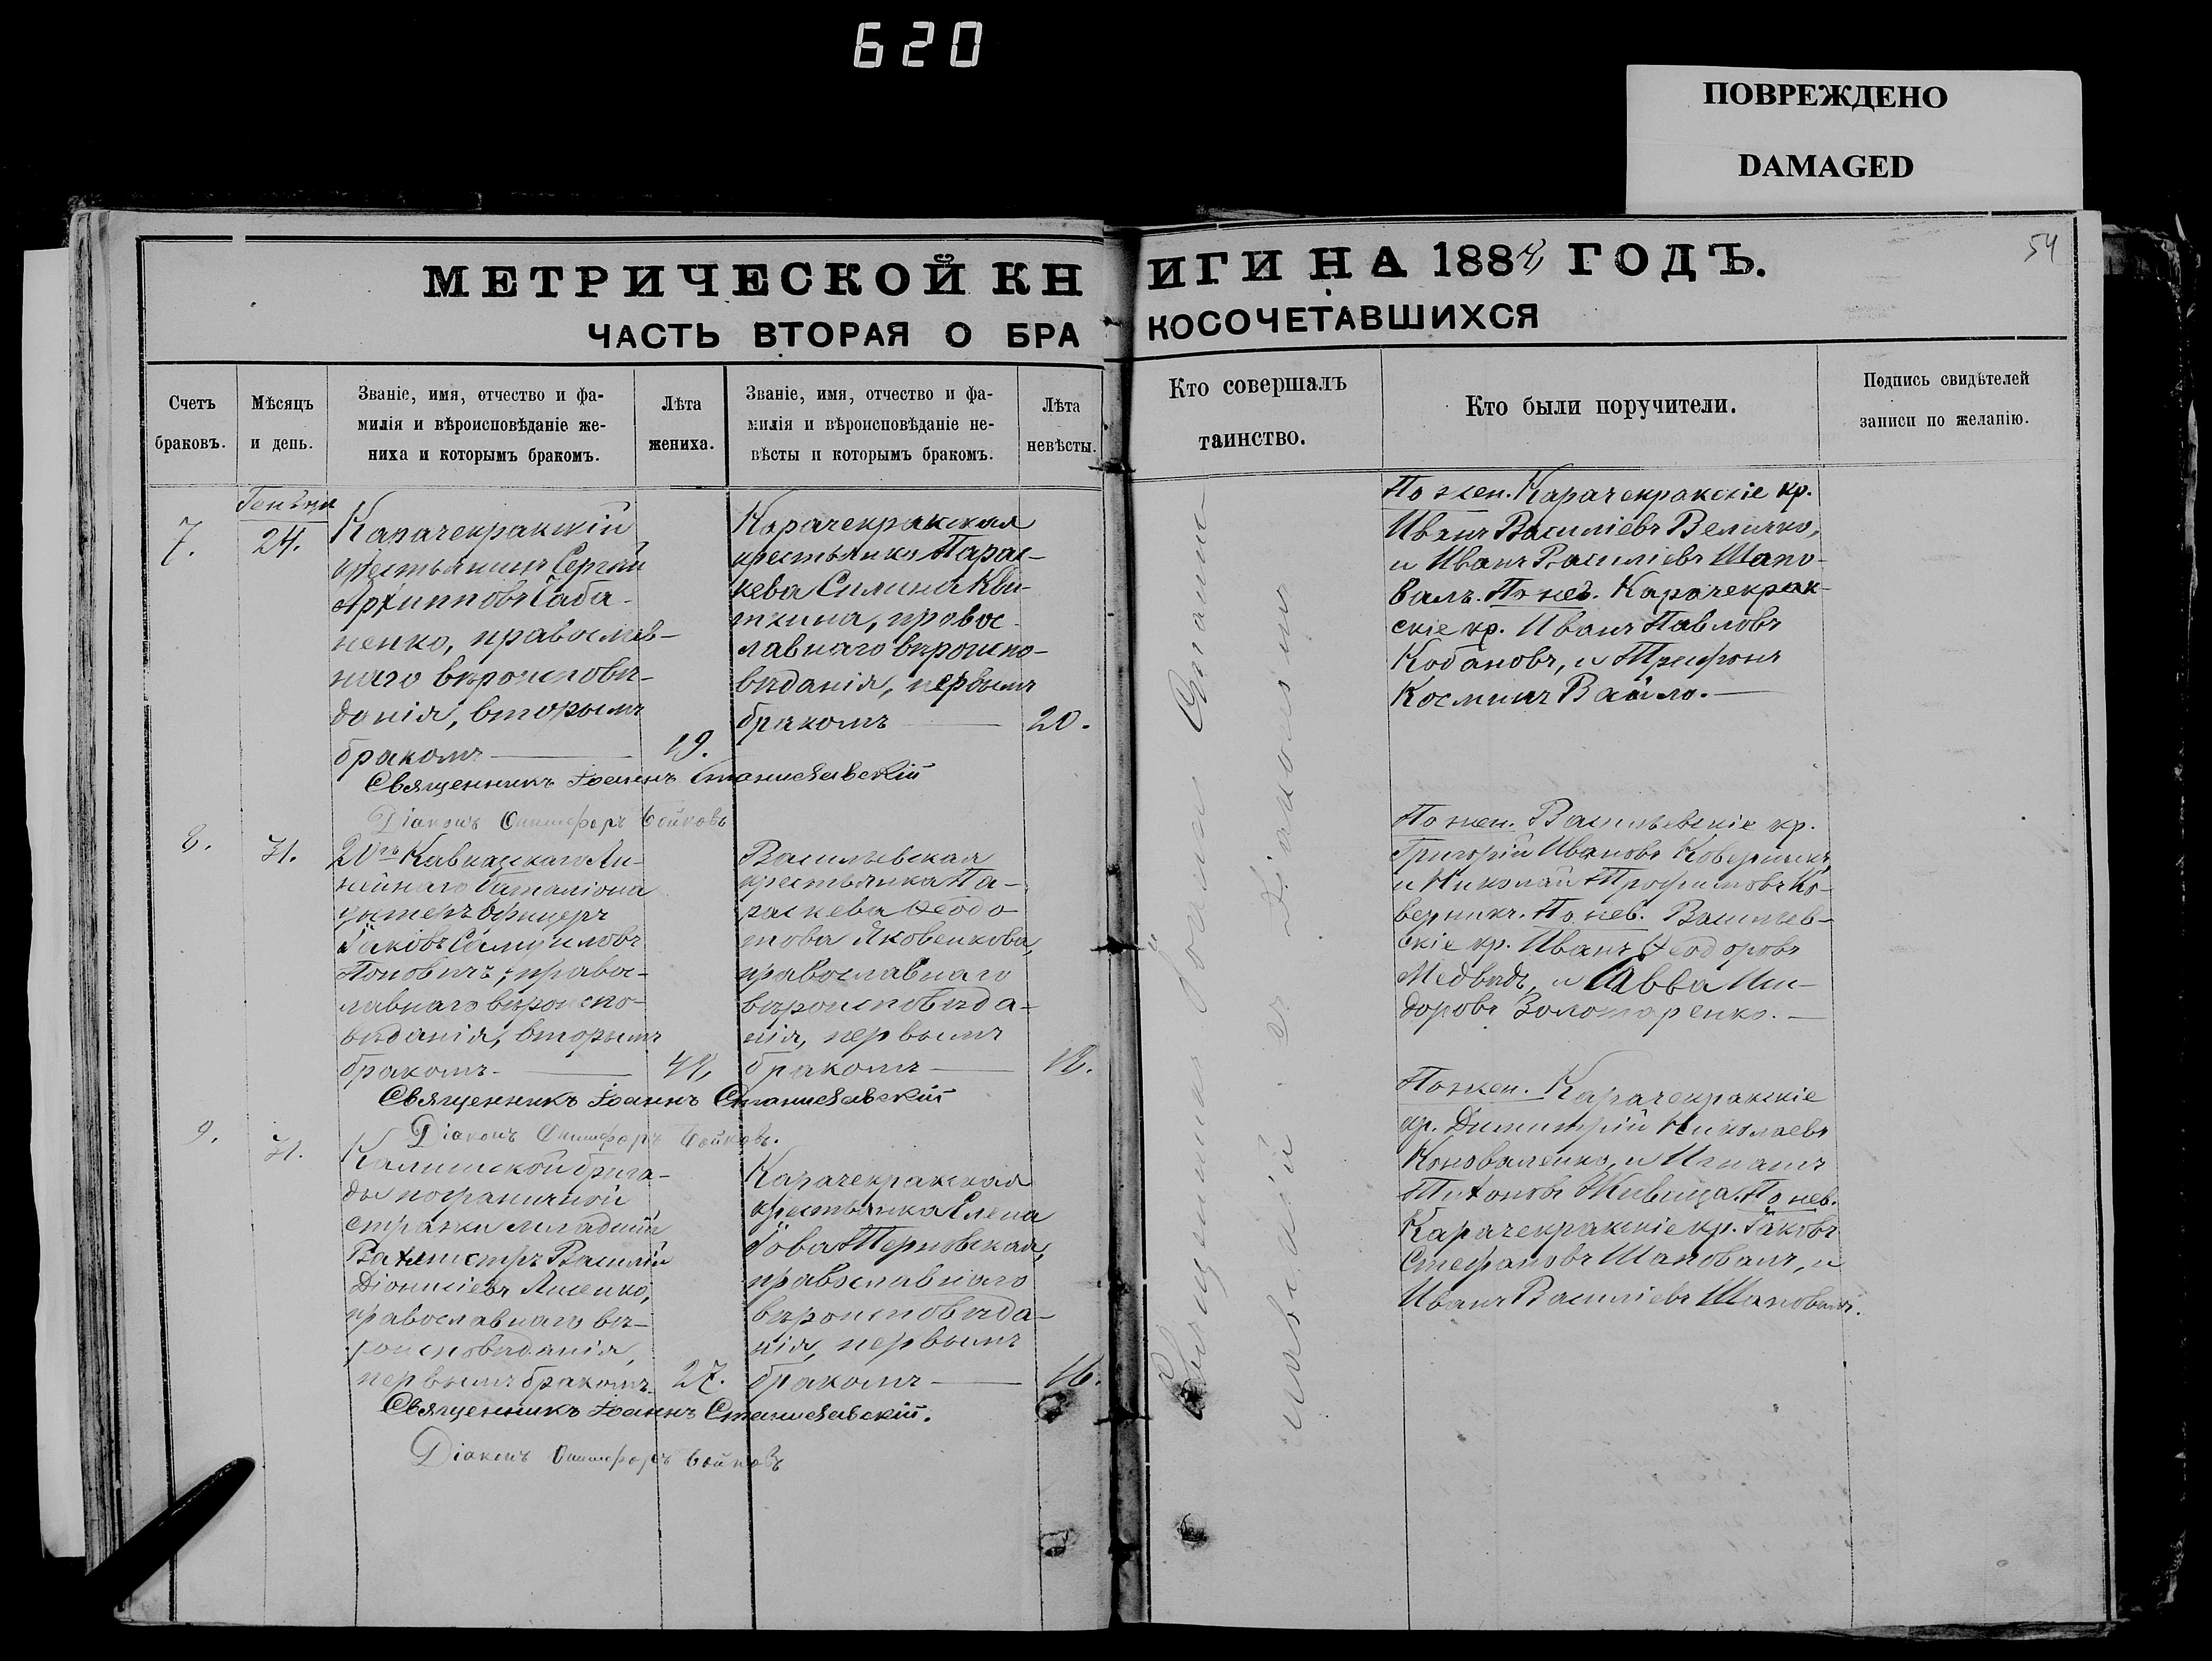 620
ПОВРЕЖДЕНО
DAMAGED
54
МЕТРИЧЕСКОЙ КНИГИ НА 1884 ГОДЪ.
ЧАСТЬ ВТОРАЯ О БРАКОСОЧЕТАВШИХСЯ
Счетъ
браковъ.
Мѣсяцъ
и день.
Званіе, имя, отчество и фа-
милія и вѣроисповѣданіе же-
ниха и которымъ бракомъ.
Лѣта
жениха.
Званіе, имя, отчество и фа-
милія и вѣроисповѣданіе не-
вѣсты и которымъ бракомъ.
Лѣта
невѣсты.
Кто совершалъ
таинство.
Кто были поручители.
Подпись свидѣтелей
записи по желанію.
7.
24.
Карачекракскій
крестьянинъ Сергѣй
Архипповъ Габа-
ненко, православ-
наго вѣроисповѣ-
данія, вторымъ
бракомъ
19.
Карачекракская
крестьянка Парас-
кева Силина Кви-
ткина, правос-
лавнаго вѣроиспо-
вѣданія, первымъ
бракомъ
20.
По жен. Карачекракскіе кр.
Иванъ Василіевъ Величко,
и Иванъ Василіевъ Шапо-
валъ. По нев. Карачекрак-
скіе кр. Иванъ Павловъ
Кобановъ, и Трифонъ
Космимъ Вайло.
Священникъ Іоаннъ Станиславскій
Діаконъ Онисифоръ Бойковъ
8.
31.
20го Кавказскаго Ли-
нейнаго Баталіона
унтеръ офицеръ
Іаковъ Самуиловъ
Поповичъ, правос-
лавнаго вѣроиспо-
вѣданія, вторымъ
бракомъ
42.
Васильевская
крестьянка Па-
раскева Ѳеодо-
това Яковенкова,
православнаго
вѣроисповѣда-
нія, первымъ
бракомъ
18.
По жен. Васильевскіе кр.
Григорій Ивановъ Коверникъ
и Николай Трофимовъ Ко-
верникъ. По нев. Васильев-
скіе кр. Иванъ Ѳеодоровъ
Медвѣдь, и Савва Иси-
доровъ Золотаренко.
Священникъ Іоаннъ Станиславскій
Діаконъ Онисифоръ Бойковъ.
9.
31.
Калишской брига-
ды пограничной
стражи младшій
Вахмистръ Василій
Діонисіевъ Лисенко,
православнаго вѣ-
роисповѣданія,
первымъ бракомъ
27.
Карачекракская
крестьянка Елена
Іова Терновская,
православнаго
вѣроисповѣда-
нія, первымъ
бракомъ
16.
По жен. Карачекракскіе
кр. Димитрій Николаевъ
Коноваленко, и Игнатъ
Тихоновъ Живица. По нев.
Карачекракскіе кр. Іаковъ
Стефановъ Шаповалъ, и
Иванъ Василіевъ Шаповалъ.
Священникъ Іоаннъ Станиславскій.
Діаконъ Онисифоръ Бойковъ
Священникъ Іоаннъ Стани-
славскій съ Діакономъ